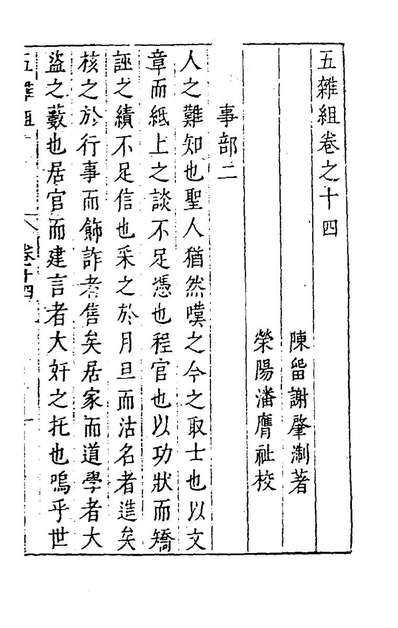 五雜組卷之十四
陳留謝肇淛著
滎陽潘膺祉校
事部二
人之難知也聖人猶然嘆之今之取士也以文
章而紙上之談不足憑也程官也以功狀而矯
誣之績不足信也采之於月旦而沽名者進矣
核之於行事而飾詐者售矣居家而道學者大
盜之藪也居官而建言者大奸之托也嗚乎世
五雜組 卷十四